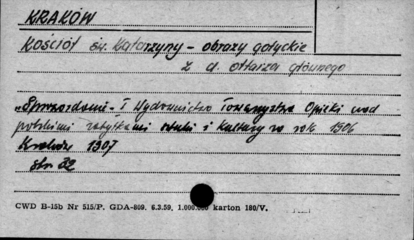 KRAKÓW
Kościół św. Katarzyny - obrazy gotyckie
z d. ołtarza głównego
„Sprawozdanie - I Wydawnictwo Towarzystwa Opieki nad
polskimi zabytkami sztuki i kultury w rok 1906
Kraków 1907
str 32
CWD B-15b Nr 515/P. GDA-809. 6.3.59. 1.000.000 karton 180/V.